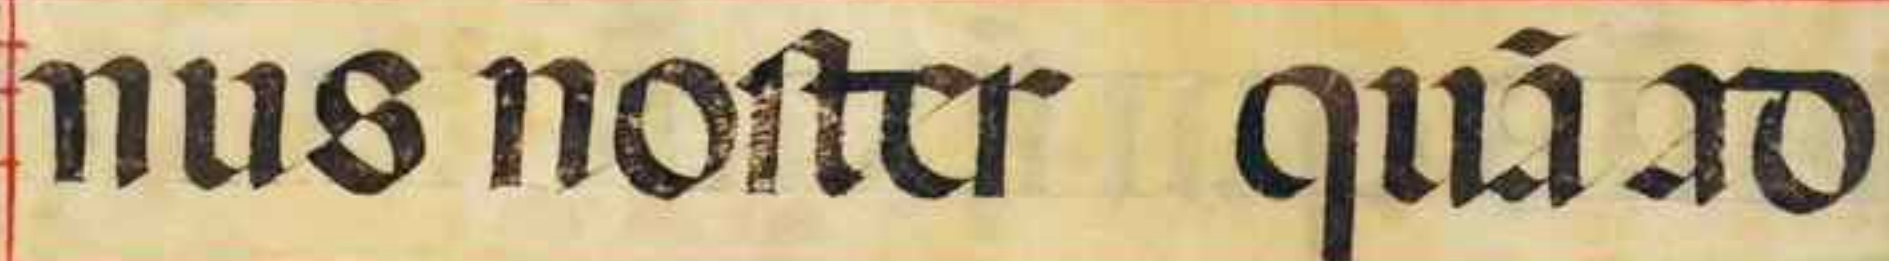 nus noſter quā ad